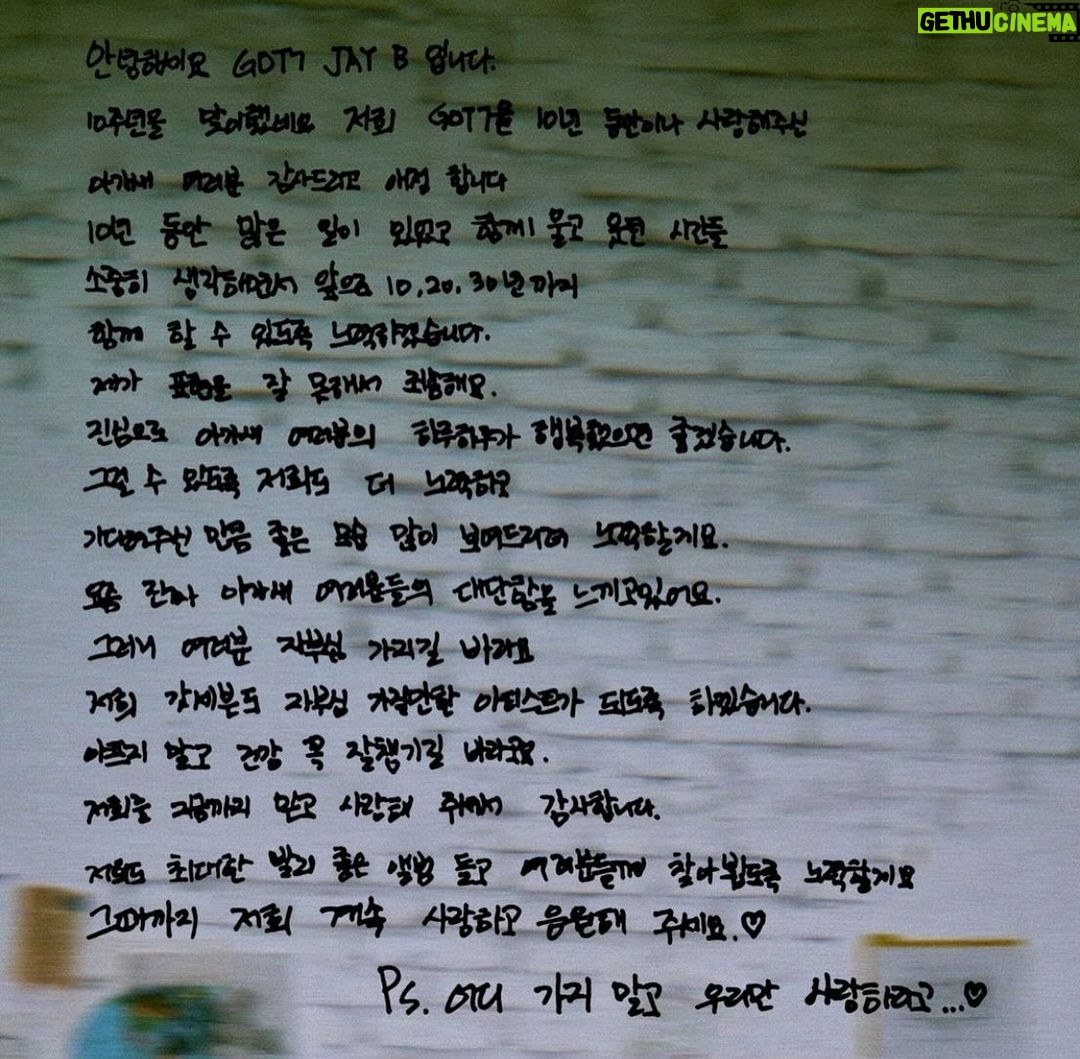 GETHUCINEMA
안녕하세요 GOT7 JAY B 입니다.
10주년을 맞이했네요 저희 GOT7을 10년 동안이나 사랑해주신
아가새 여러분 감사드리고 애정 합니다
10년 동안 많은 일이 있었고 함께 울고 웃던 시간들
소중히 생각하면서 앞으로 10, 20, 30년까지
함께 할 수 있도록 노력하겠습니다.
제가 표현을 잘 못해서 죄송해요.
진심으로 아가새 여러분의 하루하루가 행복했으면 좋겠습니다.
그럴 수 있도록 저희도 더 노력하고
기다려주신 만큼 좋은 모습 많이 보여드리려 노력할게요.
요즘 진짜 아가새 여러분들의 대단함을 느끼고있어요.
그러니 여러분 자부심 가지길 바라요
저희 갓세븐도 자부심 가질만한 아티스트가 되도록 하겠습니다.
아프지 말고 건강 꼭 잘챙기길 바라고요.
저희를 지금까지 믿고 사랑해 줘서 감사합니다.
저희도 최대한 빨리 좋은 앨범 들고 여러분들께 찾아뵙도록 노력할게요
그때까지 저희 계속 사랑하고 응원해 주세요.♡
Ps. 어디 가지 말고 우리만 사랑하라고...♡